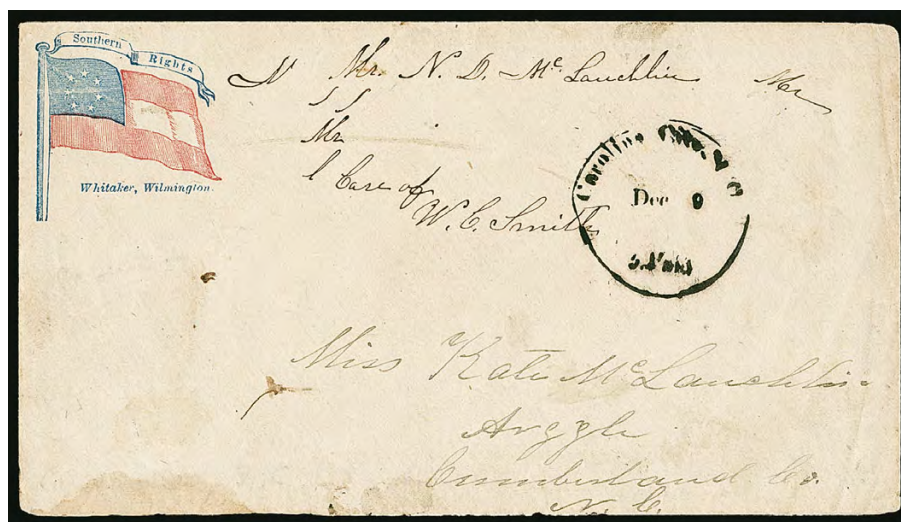 Southern Rights
Whitaker, Wilmington.
N Mr. N. D. McLauchlin Mr
Mr
Care of
W. C. Smith
Carolina City, N C
Dec 9
5 Paid
Miss Kate McLauchlin
Argyle
Cumberland Co.
N. C.